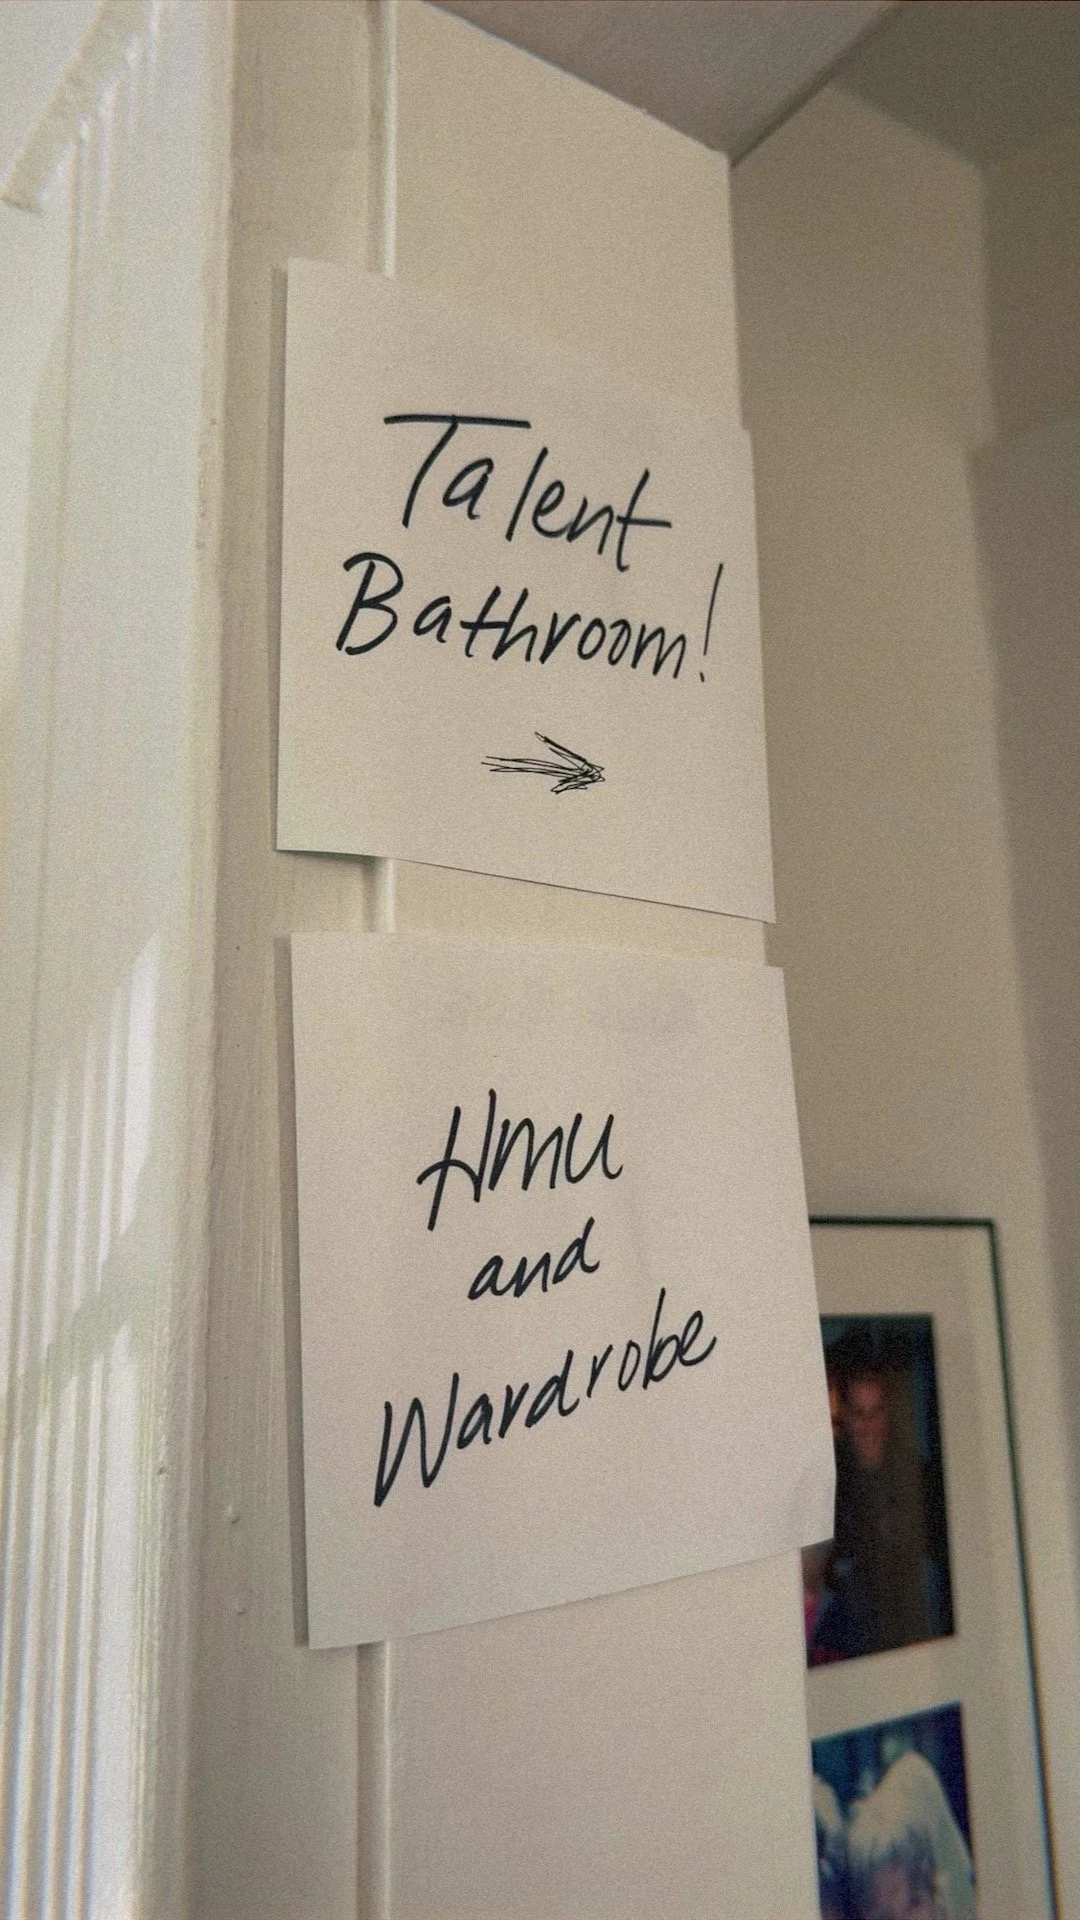 Talent
Bathroom!
Hmu
and
Wardrobe